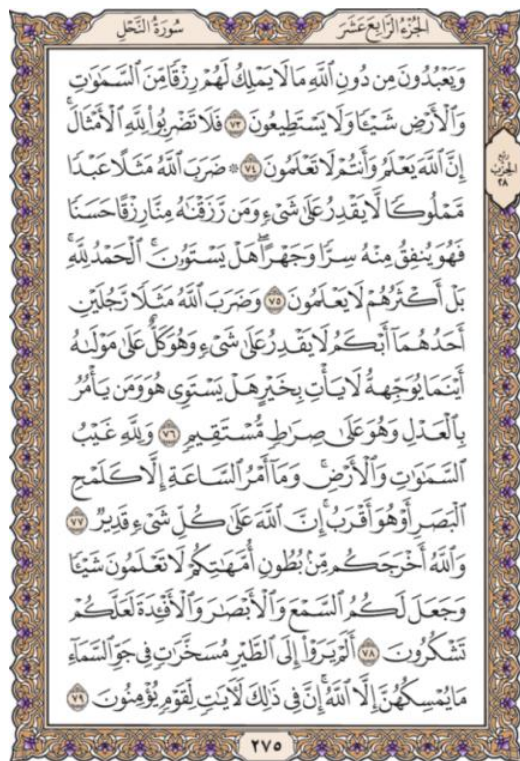 الجزء الرابع عشر
سورة النحل
وَيَعْبُدُونَ مِن دُونِ اللَّهِ مَا لَا يَمْلِكُ لَهُمْ رِزْقًا مِّنَ السَّمَٰوَٰتِ
وَالْأَرْضِ شَيْـًٔا وَلَا يَسْتَطِيعُونَ ٧٣ فَلَا تَضْرِبُوا۟ لِلَّهِ الْأَمْثَالَ ۚ
إِنَّ اللَّهَ يَعْلَمُ وَأَنتُمْ لَا تَعْلَمُونَ ٧٤ ۞ ضَرَبَ اللَّهُ مَثَلًا عَبْدًا
مَّمْلُوكًا لَّا يَقْدِرُ عَلَىٰ شَىْءٍ وَمَن رَّزَقْنَٰهُ مِنَّا رِزْقًا حَسَنًا
فَهُوَ يُنفِقُ مِنْهُ سِرًّا وَجَهْرًا ۖ هَلْ يَسْتَوُۥنَ ۚ الْحَمْدُ لِلَّهِ ۚ
بَلْ أَكْثَرُهُمْ لَا يَعْلَمُونَ ٧٥ وَضَرَبَ اللَّهُ مَثَلًا رَّجُلَيْنِ
أَحَدُهُمَآ أَبْكَمُ لَا يَقْدِرُ عَلَىٰ شَىْءٍ وَهُوَ كَلٌّ عَلَىٰ مَوْلَىٰهُ
أَيْنَمَا يُوَجِّههُّ لَا يَأْتِ بِخَيْرٍ ۖ هَلْ يَسْتَوِى هُوَ وَمَن يَأْمُرُ
بِالْعَدْلِ ۙ وَهُوَ عَلَىٰ صِرَٰطٍ مُّسْتَقِيمٍ ٧٦ وَلِلَّهِ غَيْبُ
السَّمَٰوَٰتِ وَالْأَرْضِ ۚ وَمَآ أَمْرُ السَّاعَةِ إِلَّا كَلَمْحِ
الْبَصَرِ أَوْ هُوَ أَقْرَبُ ۚ إِنَّ اللَّهَ عَلَىٰ كُلِّ شَىْءٍ قَدِيرٌ ٧٧
وَاللَّهُ أَخْرَجَكُم مِّنۢ بُطُونِ أُمَّهَٰتِكُمْ لَا تَعْلَمُونَ شَيْـًٔا
وَجَعَلَ لَكُمُ السَّمْعَ وَالْأَبْصَٰرَ وَالْأَفْـِٔدَةَ ۙ لَعَلَّكُمْ
تَشْكُرُونَ ٧٨ أَلَمْ يَرَوْا۟ إِلَى الطَّيْرِ مُسَخَّرَٰتٍ فِى جَوِّ السَّمَآءِ
مَا يُمْسِكُهُنَّ إِلَّا اللَّهُ ۗ إِنَّ فِى ذَٰلِكَ لَءَايَٰتٍ لِّقَوْمٍ يُؤْمِنُونَ ٧٩
ربع
الحزب
٢٨
٢٧٥